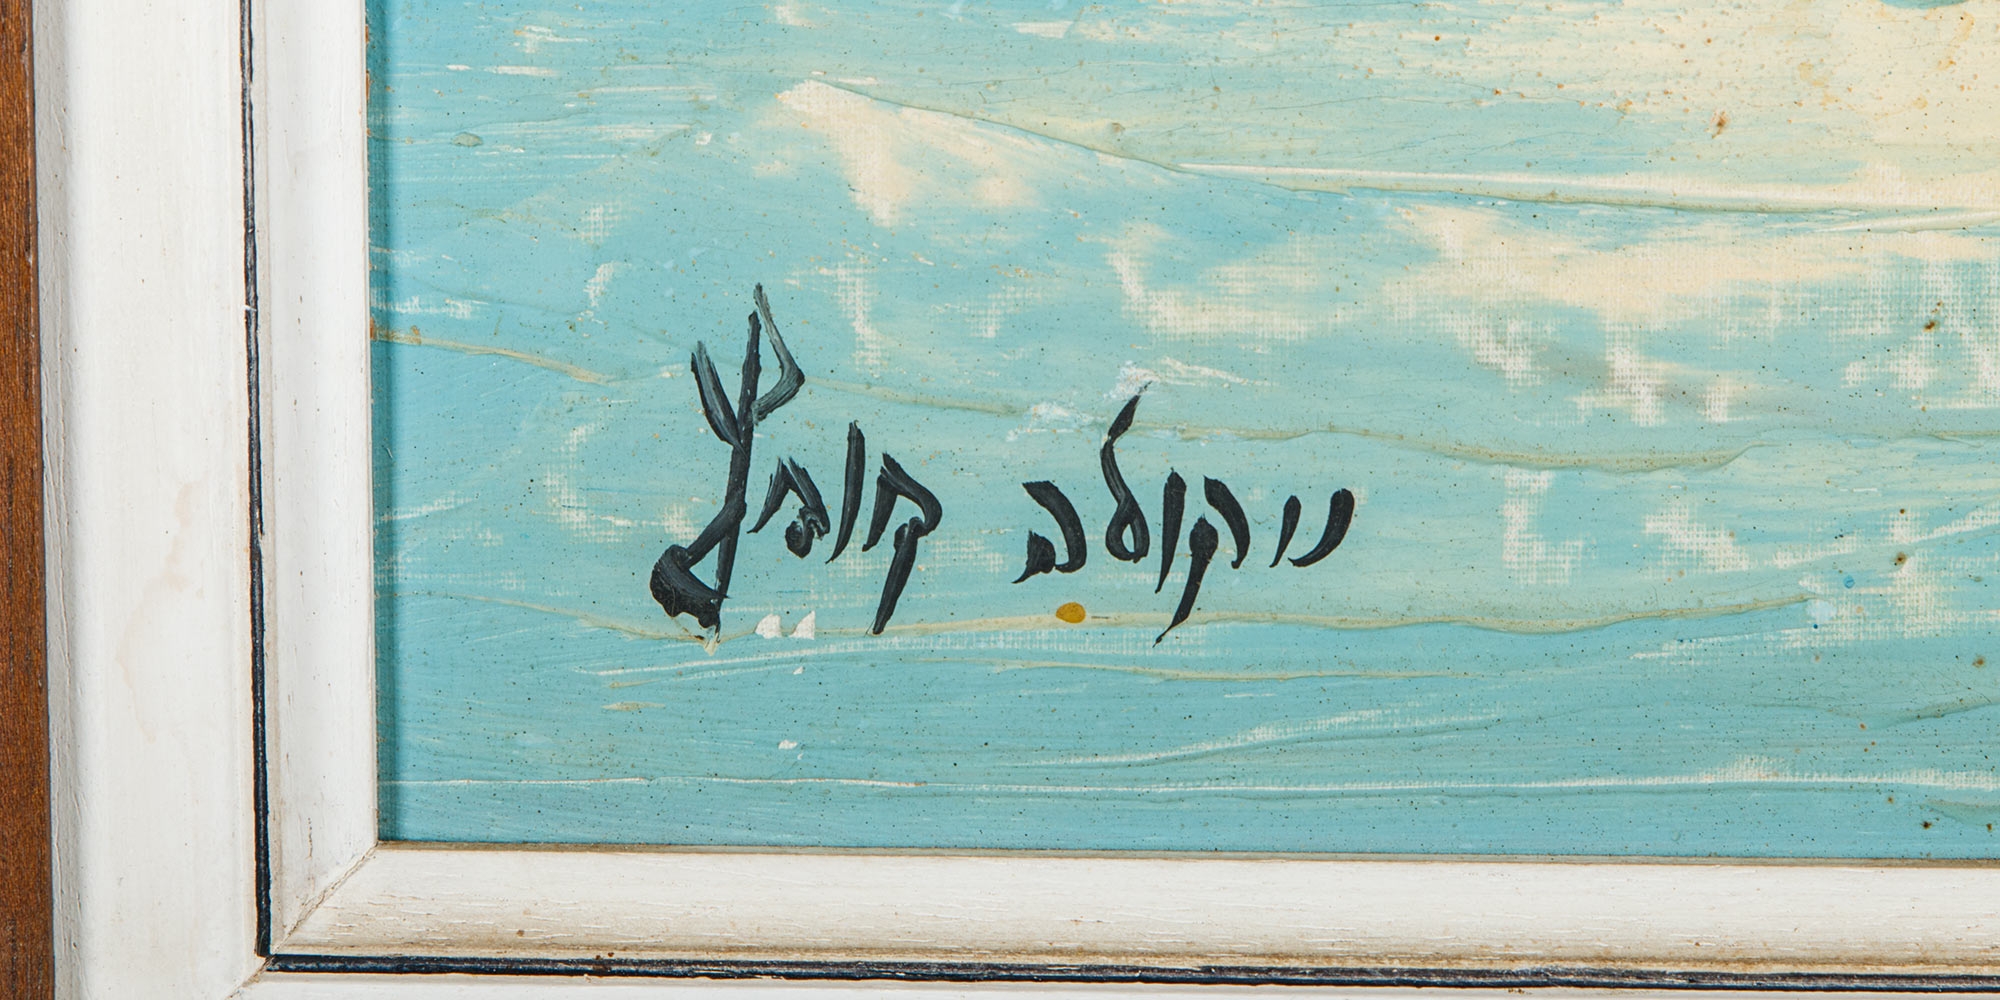 ניקולב קופץ